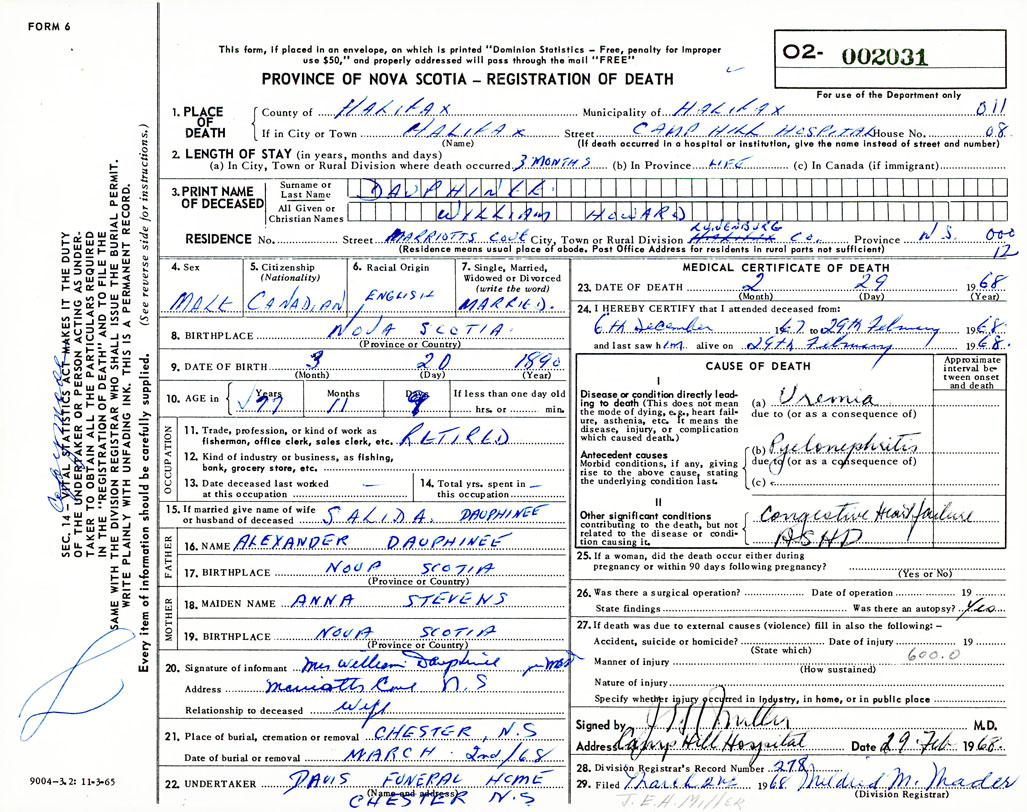 FORM 6
This form, if placed in an envelope, on which is printed "Dominion Statistics – Free, penalty for improper
use $50," and properly addressed will pass through the mail "FREE"
PROVINCE OF NOVA SCOTIA – REGISTRATION OF DEATH
02- 002031
For use of the Department only
1. PLACE OF DEATH County of HALIFAX Municipality of HALIFAX 011
If in City or Town HALIFAX Street CAMP HILL HOSPITAL House No. 08
(Name) (If death occurred in a hospital or institution, give the name instead of street and number)
2. LENGTH OF STAY (in years, months and days)
(a) In City, Town or Rural Division where death occurred 3 MONTHS (b) In Province LIFE (c) In Canada (if immigrant)
3. PRINT NAME OF DECEASED Surname or Last Name DAUPHINEE
All Given or Christian Names WILLIAM HOWARD
RESIDENCE No. Street MARRIOTTS COVE City, Town or Rural Division LUNENBURG Co. Province N.S. 000
(Residence means usual place of abode. Post Office Address for residents in rural parts not sufficient) 12
4. Sex MALE
5. Citizenship (Nationality) CANADIAN
6. Racial Origin ENGLISH
7. Single, Married, Widowed or Divorced (write the word) MARRIED.
8. BIRTHPLACE NOVA SCOTIA
(Province or Country)
9. DATE OF BIRTH 3 20 1890
(Month) (Day) (Year)
10. AGE in Years 77 Months 11 Days 9 If less than one day old
hrs. or min.
OCCUPATION
11. Trade, profession, or kind of work as fisherman, office clerk, sales clerk, etc. RETIRED
12. Kind of industry or business, as fishing, bank, grocery store, etc.
13. Date deceased last worked at this occupation —
14. Total yrs. spent in this occupation —
15. If married give name of wife or husband of deceased SALIDA DAUPHINEE
FATHER
16. NAME ALEXANDER DAUPHINEE
17. BIRTHPLACE NOVA SCOTIA
(Province or Country)
MOTHER
18. MAIDEN NAME ANNA STEVENS
19. BIRTHPLACE NOVA SCOTIA
(Province or Country)
20. Signature of informant Mrs William Dauphinee
Address Marriotts Cove N.S
Relationship to deceased wife
21. Place of burial, cremation or removal CHESTER, N.S
Date of burial or removal MARCH 2nd/68
22. UNDERTAKER DAVIS FUNERAL HOME
(Name and address)
CHESTER N.S
MEDICAL CERTIFICATE OF DEATH
23. DATE OF DEATH 2 29 1968
(Month) (Day) (Year)
24. I HEREBY CERTIFY that I attended deceased from:
6th December 1967 to 29th February 1968
and last saw him alive on 29th February 1968.
CAUSE OF DEATH
Approximate interval between onset and death
I
Disease or condition directly leading to death (This does not mean the mode of dying, e.g., heart failure, asthenia, etc. It means the disease, injury, or complication which caused death.)
(a) Uremia
due to (or as a consequence of)
Antecedent causes
Morbid conditions, if any, giving rise to the above cause, stating the underlying condition last.
(b) Pyelonephritis
due to (or as a consequence of)
(c)
II
Other significant conditions contributing to the death, but not related to the disease or condition causing it.
Congestive Heart failure
ASHD
25. If a woman, did the death occur either during
pregnancy or within 90 days following pregnancy?
(Yes or No)
26. Was there a surgical operation? Date of operation 19
State findings Was there an autopsy? Yes
27. If death was due to external causes (violence) fill in also the following:–
Accident, suicide or homicide? Date of injury 19
(State which) 600.0
Manner of injury
(How sustained)
Nature of injury
Specify whether injury occurred in Industry, in home, or in public place
Signed by Miller M.D.
Address Camp Hill Hospital Date 29 Feb 1968.
28. Division Registrar's Record Number 278
29. Filed 1968 Mildred M. Mader
(Division Registrar)
J.E.H. MILLER
SEC. 14 – VITAL STATISTICS ACT MAKES IT THE DUTY
OF THE UNDERTAKER OR PERSON ACTING AS UNDER-
TAKER TO OBTAIN ALL THE PARTICULARS REQUIRED
IN THE "REGISTRATION OF DEATH" AND TO FILE THE
SAME WITH THE DIVISION REGISTRAR WHO SHALL ISSUE THE BURIAL PERMIT.
WRITE PLAINLY WITH UNFADING INK. THIS IS A PERMANENT RECORD.
Every item of information should be carefully supplied. (See reverse side for instructions.)
9004-3.2: 11-3-65